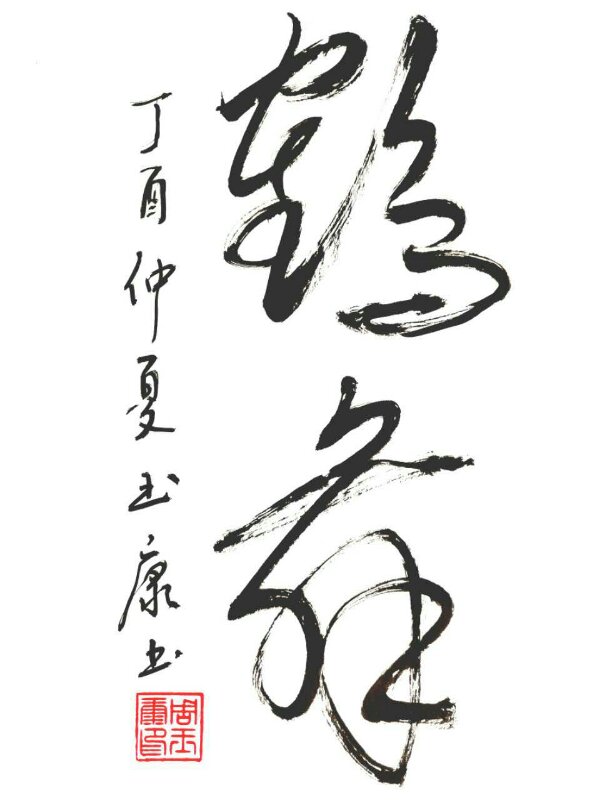 鹤舞
丁酉仲夏玉康书
周玉康印